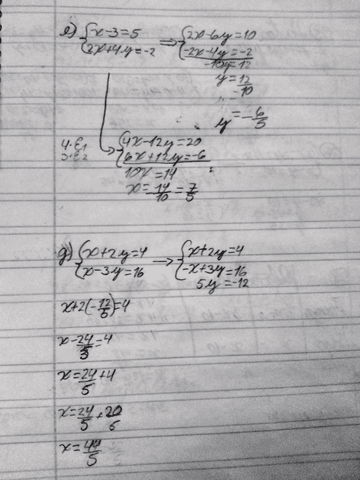 e) {x-3=5 → {2x-6y=10
{2x+4y=-2 {-2x-4y=-2
-10y=12
y=12/-10
y=-6/5
4·E1 {4x-12y=20
3·E2 {6x+12y=-6
10x=14
x=14/10=7/5
g) {x+2y=4 → {x+2y=4
{x-3y=16 {-x+3y=16
5y=-12
x+2(-12/5)=4
x-24/5=4
x=24/5+4
x=24/5+20/5
x=44/5